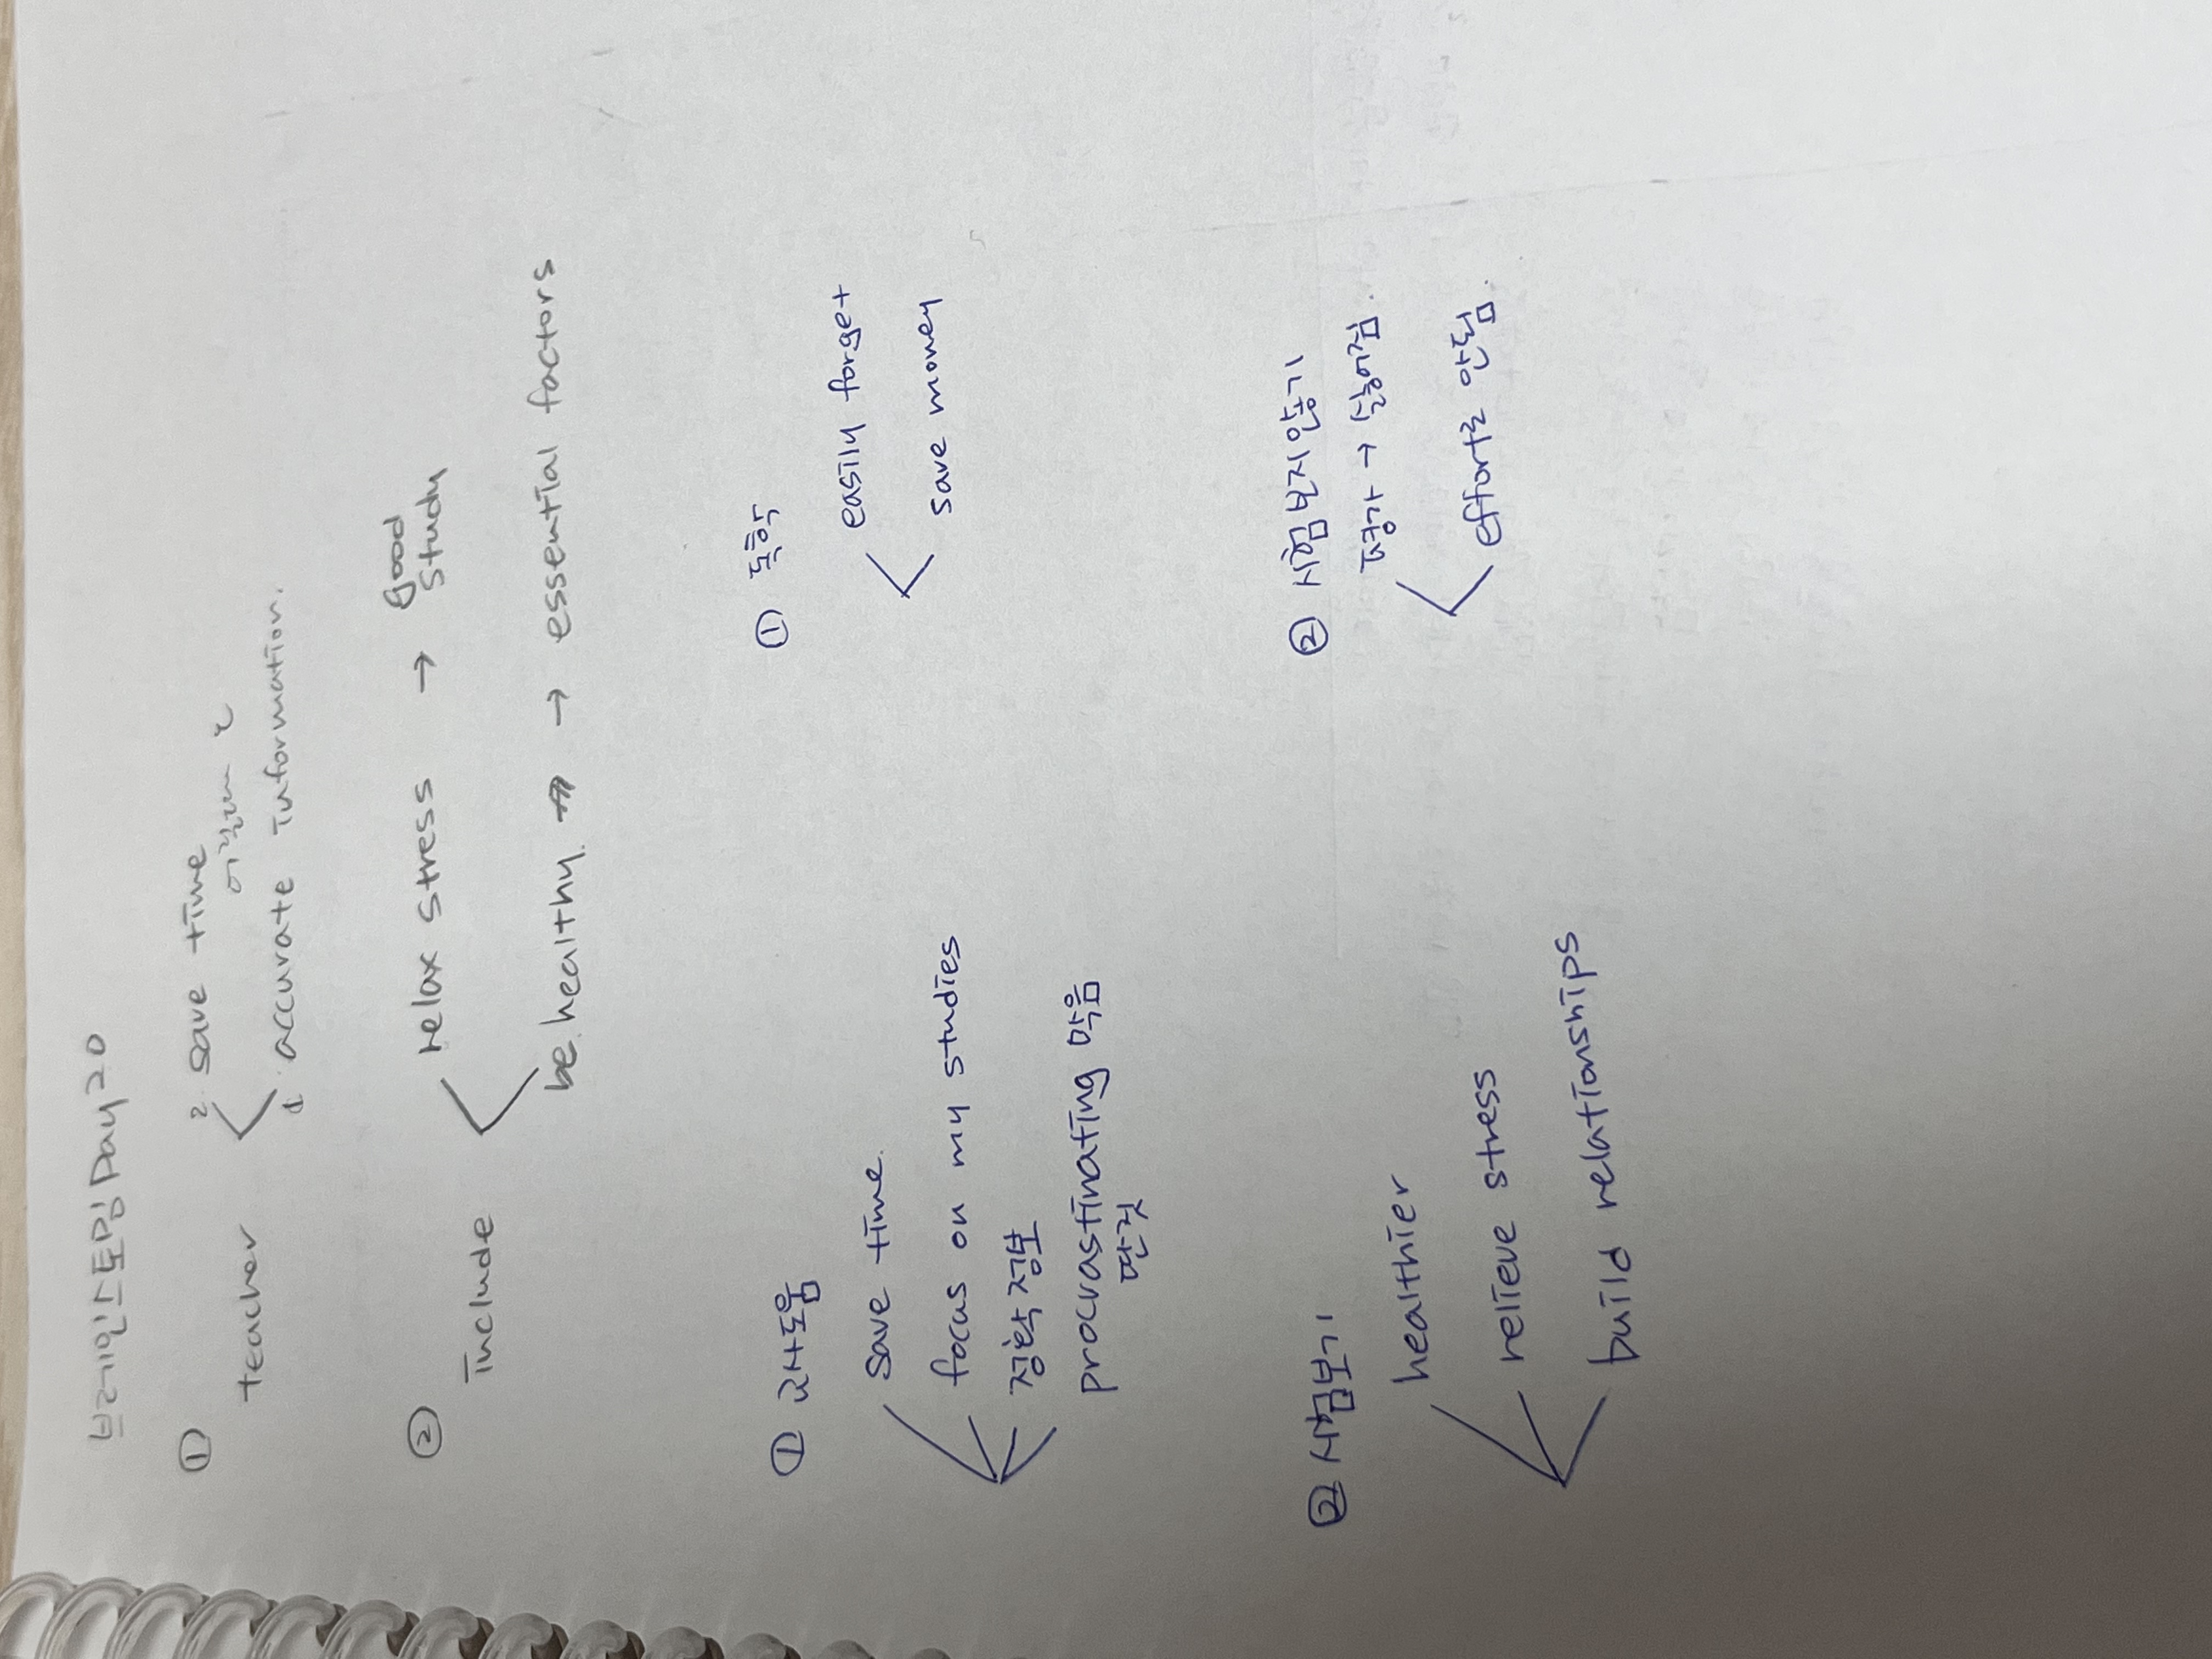 브레인스토밍 Day 20
①
teacher
2. save time
1. accurate information.
②
include
relax stress → good study
be healthy → essential factors
① 교사도움
save time.
focus on my studies
정확 정보
procrastinating 막음
딴짓
① 독학
easily forget
save money
② 시험보기
healthier
relieve stress
build relationships
② 시험보지않기
평가 → 싫어짐.
effort로 안됨.